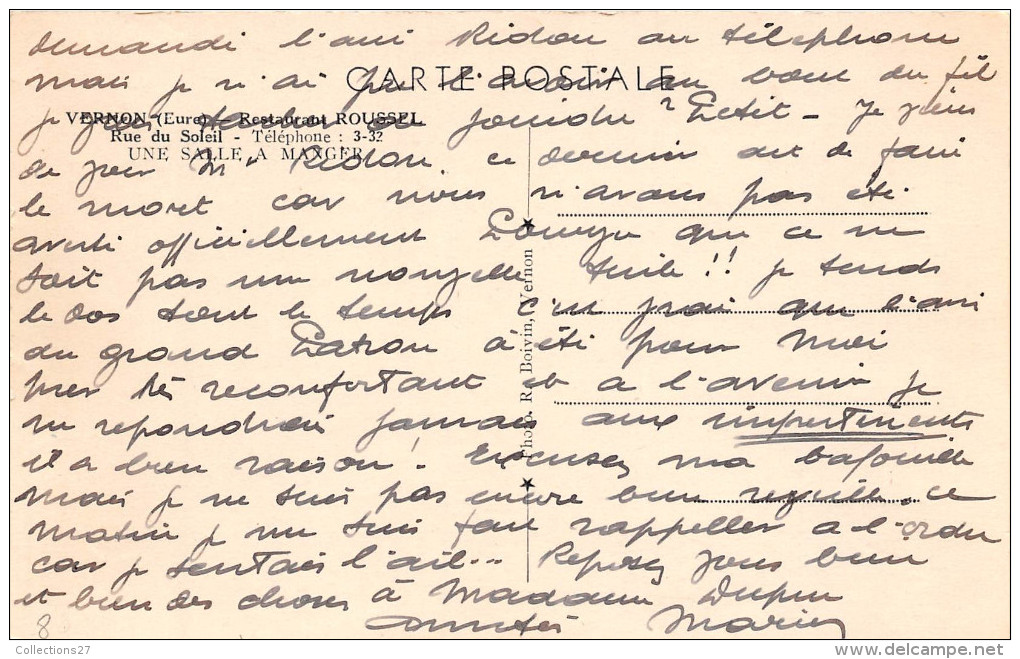 demandé l'ami Ridou au téléphone
CARTE POSTALE
mais je n'ai pu l'avoir au bout du fil
VERNON (Eure) — Restaurant ROUSSEL
Rue du Soleil - Téléphone : 3-32
UNE SALLE A MANGER
je joindre Petit - Je viens
de voir Mr Ridou, ce dernier de faire
le mort car nous n'avons pas été
averti officiellement Pourvu que ce ne
soit pas une nouvelle tuile !! je tends
le dos tout le temps c'est vrai que l'ami
du grand Patron a été pour moi
très réconfortant et a l'avenir je
ne repondrai jamais aux impertinents
il a bien raison ! Excusez ma bafouille
mais je ne suis pas encore bien reveillé, ce
matin je me suis fait rappeller a l'ordre
car je sentais l'ail... Reposez vous bien
et bien des choses à Madame Dupin
Amitiés
Photo. R. Boivin, Vernon
8
Collections27
delcampe.net